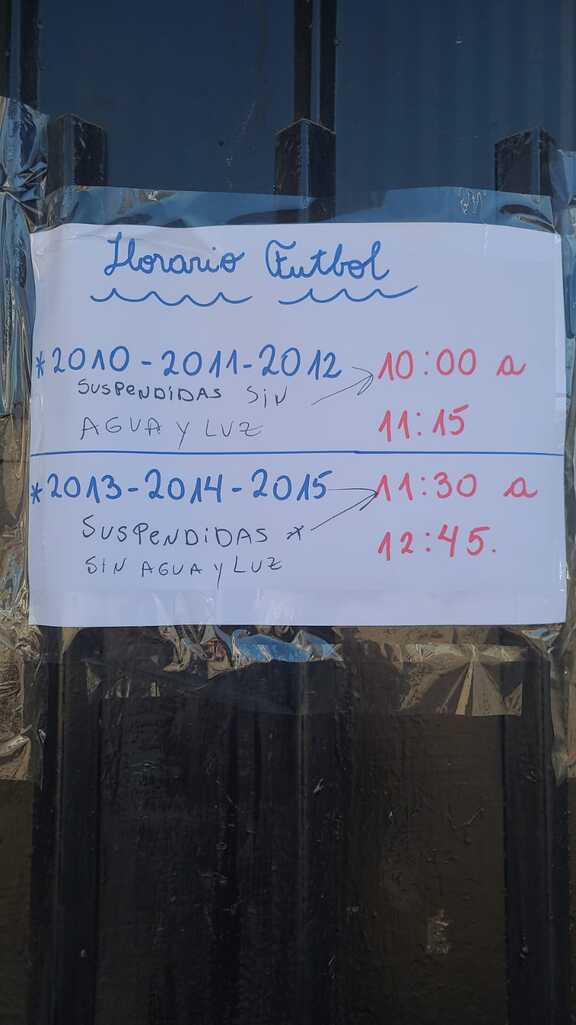 Horario Futbol
*2010-2011-2012 10:00 a
SUSPENDIDAS SIN
AGUA Y LUZ 11:15
*2013-2014-2015 11:30 a
SUSPENDIDAS *
12:45.
SIN AGUA Y LUZ